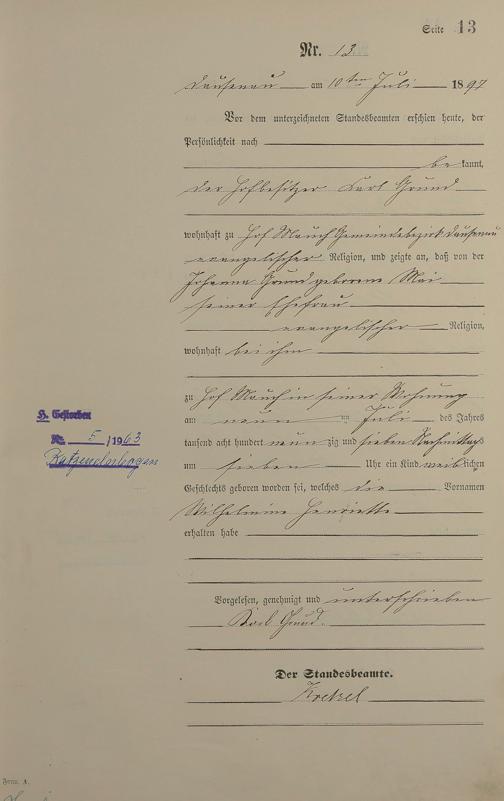 Seite 13
Nr. 13
Dausenau am 10ten Juli 1897
Vor dem unterzeichneten Standesbeamten erschien heute, der
Persönlichkeit nach
be kannt,
der Hofbesitzer Karl Grund
wohnhaft zu Hof Mauch Gemeindebezirk Dausenau
evangelischer Religion, und zeigte an, daß von der
Johanna Grund geborene Mai
seiner Ehefrau
evangelischer Religion,
wohnhaft bei ihm
zu Hof Mauch in seiner Wohnung
am neun ten Juli des Jahres
tausend acht hundert neun zig und sieben Nachmittags
um sieben Uhr ein Kind weiblichen
Geschlechts geboren worden sei, welches die Vornamen
Wilhelmine Henriette
erhalten habe
H. Gestorben
Nr. 5/1963
Katzenelnbogen
Vorgelesen, genehmigt und unterschrieben
Karl Grund.
Der Standesbeamte.
Form. A.